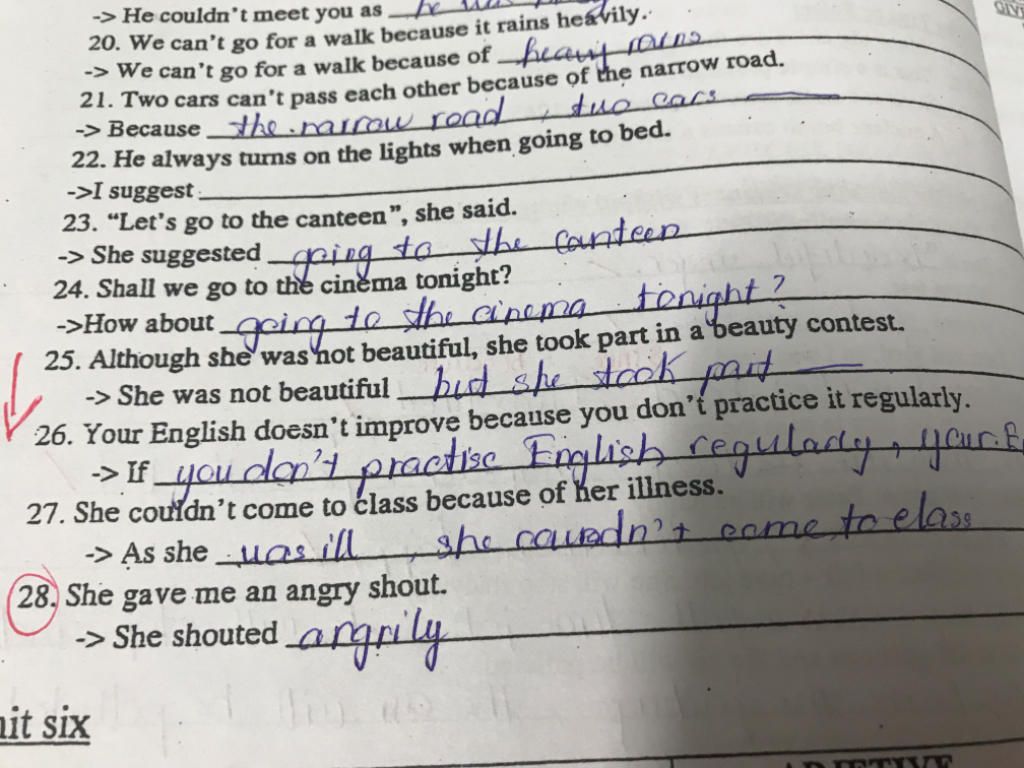 -> He couldn't meet you as he was
20. We can't go for a walk because it rains heavily.
-> We can't go for a walk because of heavy rains
21. Two cars can't pass each other because of the narrow road.
-> Because the narrow road, two cars
22. He always turns on the lights when going to bed.
->I suggest
23. “Let's go to the canteen”, she said.
-> She suggested going to the canteen
24. Shall we go to the cinema tonight?
->How about going to the cinema tonight?
25. Although she was not beautiful, she took part in a beauty contest.
-> She was not beautiful but she took part
26. Your English doesn't improve because you don't practice it regularly.
-> If you don't practise English regularly, your E
27. She couldn't come to class because of her illness.
-> As she was ill, she couldn't come to class
28. She gave me an angry shout.
-> She shouted angrily
nit six